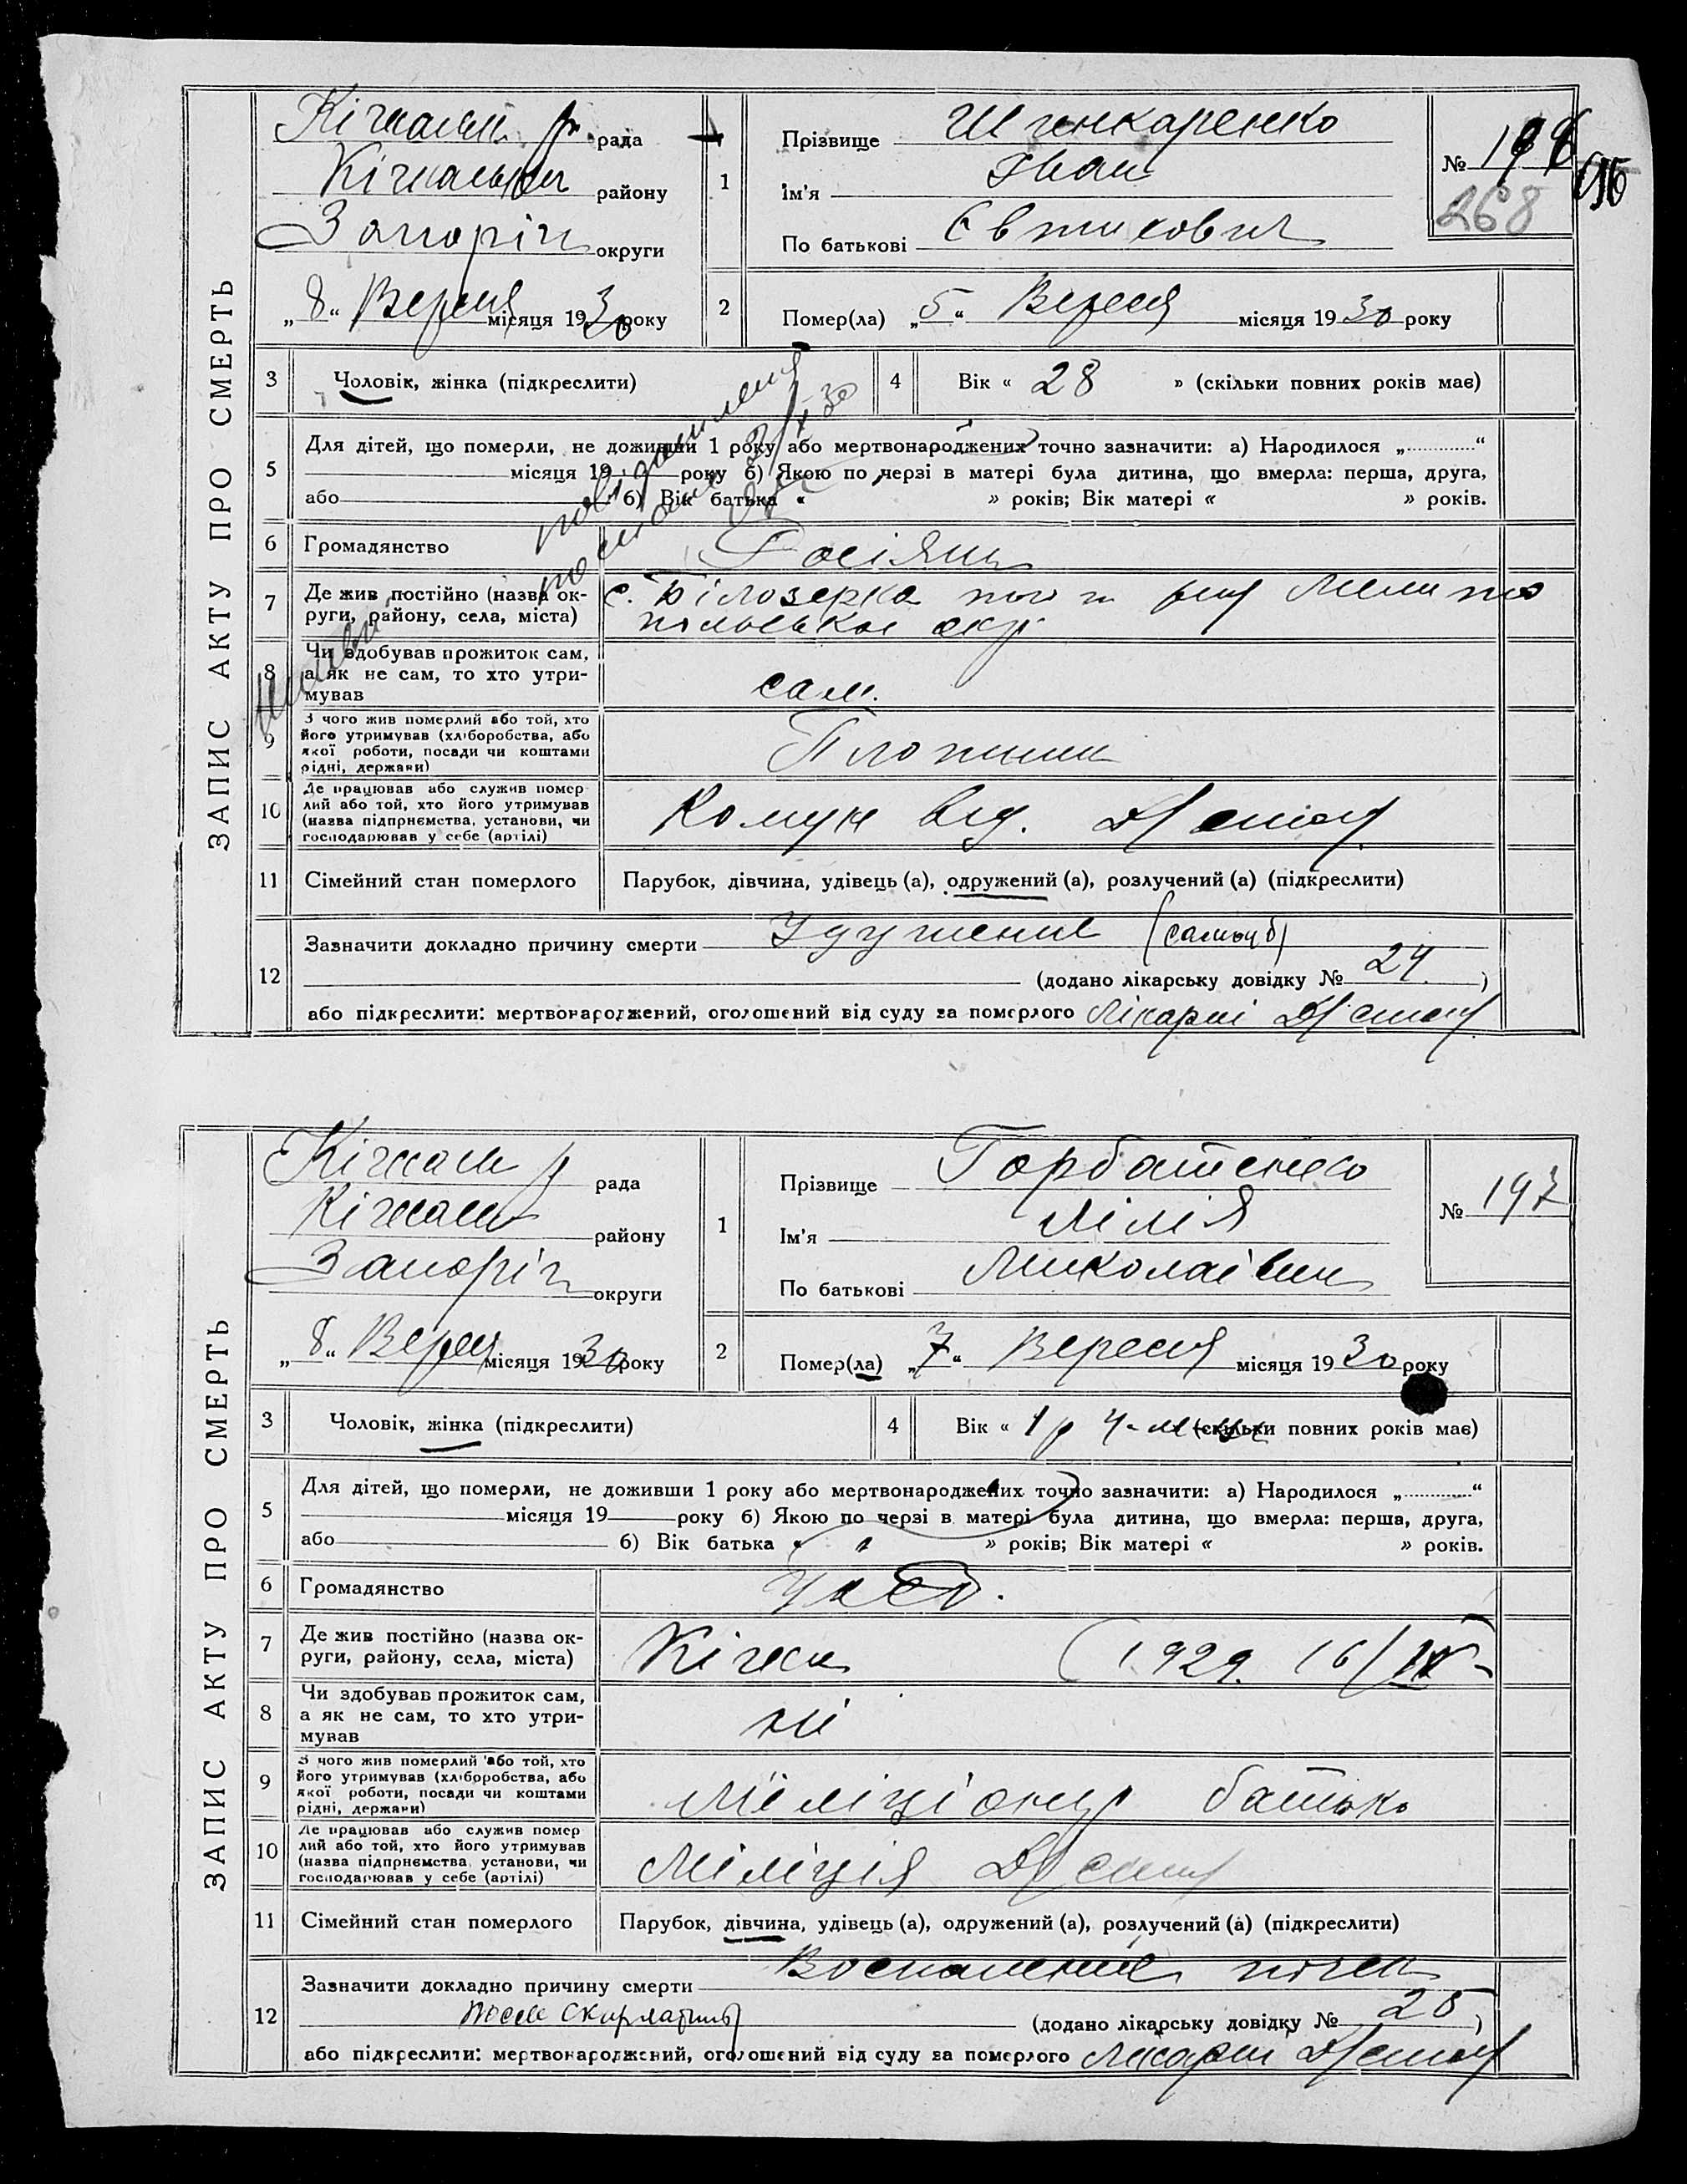 ЗАПИС АКТУ ПРО СМЕРТЬ
Кічкаськ р. рада
Кічкаськ району
Запоріз округи
„8“ Вересня місяця 1930 року
1
Прізвище Шинкаренко
Ім'я Іван
По батькові Євтихович
№ 196
268
2
Помер(ла) „5“ Вересня місяця 1930 року
3 Чоловік, жінка (підкреслити)
4 Вік « 28 » (скільки повних років має)
5 Для дітей, що померли, не доживши 1 року або мертвонароджених точно зазначити: а) Народилося „ “
місяця 19 року б) Якою по черзі в матері була дитина, що вмерла: перша, друга,
або б) Вік батька « » років; Вік матері « » років.
6 Громадянство Росіян
7 Де жив постійно (назва ок-
руги, району, села, міста) с. Білозерка Мелито
польської окр
8 Чи здобував прожиток сам,
а як не сам, то хто утри-
мував сам.
9 З чого жив померлий або той, хто
його утримував (хліборобства, або
якої роботи, посади чи коштами
рідні, держави) Плотник
10 Де працював або служив помер
лий або той, хто його утримував
(назва підприємства, установи, чи
господарював у себе (артілі) Комун від. Д/стан
11 Сімейний стан померлого Парубок, дівчина, удівець (а), одружений (а), розлучений (а) (підкреслити)
12 Зазначити докладно причину смерти Удушение (самоуб)
(додано лікарську довідку № 24. )
або підкреслити: мертвонароджений, оголошений від суду за померлого Лікарні Д/стан
ЗАПИС АКТУ ПРО СМЕРТЬ
Кічкась р рада
Кічкась району
Запоріз округи
„8“ Верес місяця 1930 року
1
Прізвище Горбатенко
Ім'я Лілія
По батькові Миколаївн
№ 197
2
Помер(ла) „7“ Вересня місяця 1930 року
3 Чоловік, жінка (підкреслити)
4 Вік « 1 р 4-м (скільки повних років має)
5 Для дітей, що померли, не доживши 1 року або мертвонароджених точно зазначити: а) Народилося „ “
місяця 19 року б) Якою по черзі в матері була дитина, що вмерла: перша, друга,
або б) Вік батька « » років; Вік матері « » років.
6 Громадянство
7 Де жив постійно (назва ок-
руги, району, села, міста) Кічкас (1929. 16/IV
8 Чи здобував прожиток сам,
а як не сам, то хто утри-
мував ні
9 З чого жив померлий або той, хто
його утримував (хліборобства, або
якої роботи, посади чи коштами
рідні, держави) Міліціонер батько
10 Де працював або служив помер
лий або той, хто його утримував
(назва підприємства, установи, чи
господарював у себе (артілі) Міліція Д/стан
11 Сімейний стан померлого Парубок, дівчина, удівець (а), одружений (а), розлучений (а) (підкреслити)
12 Зазначити докладно причину смерти Воспаление почек
после скарлатины
(додано лікарську довідку № 25 )
або підкреслити: мертвонароджений, оголошений від суду за померлого Лікарні Д/стан